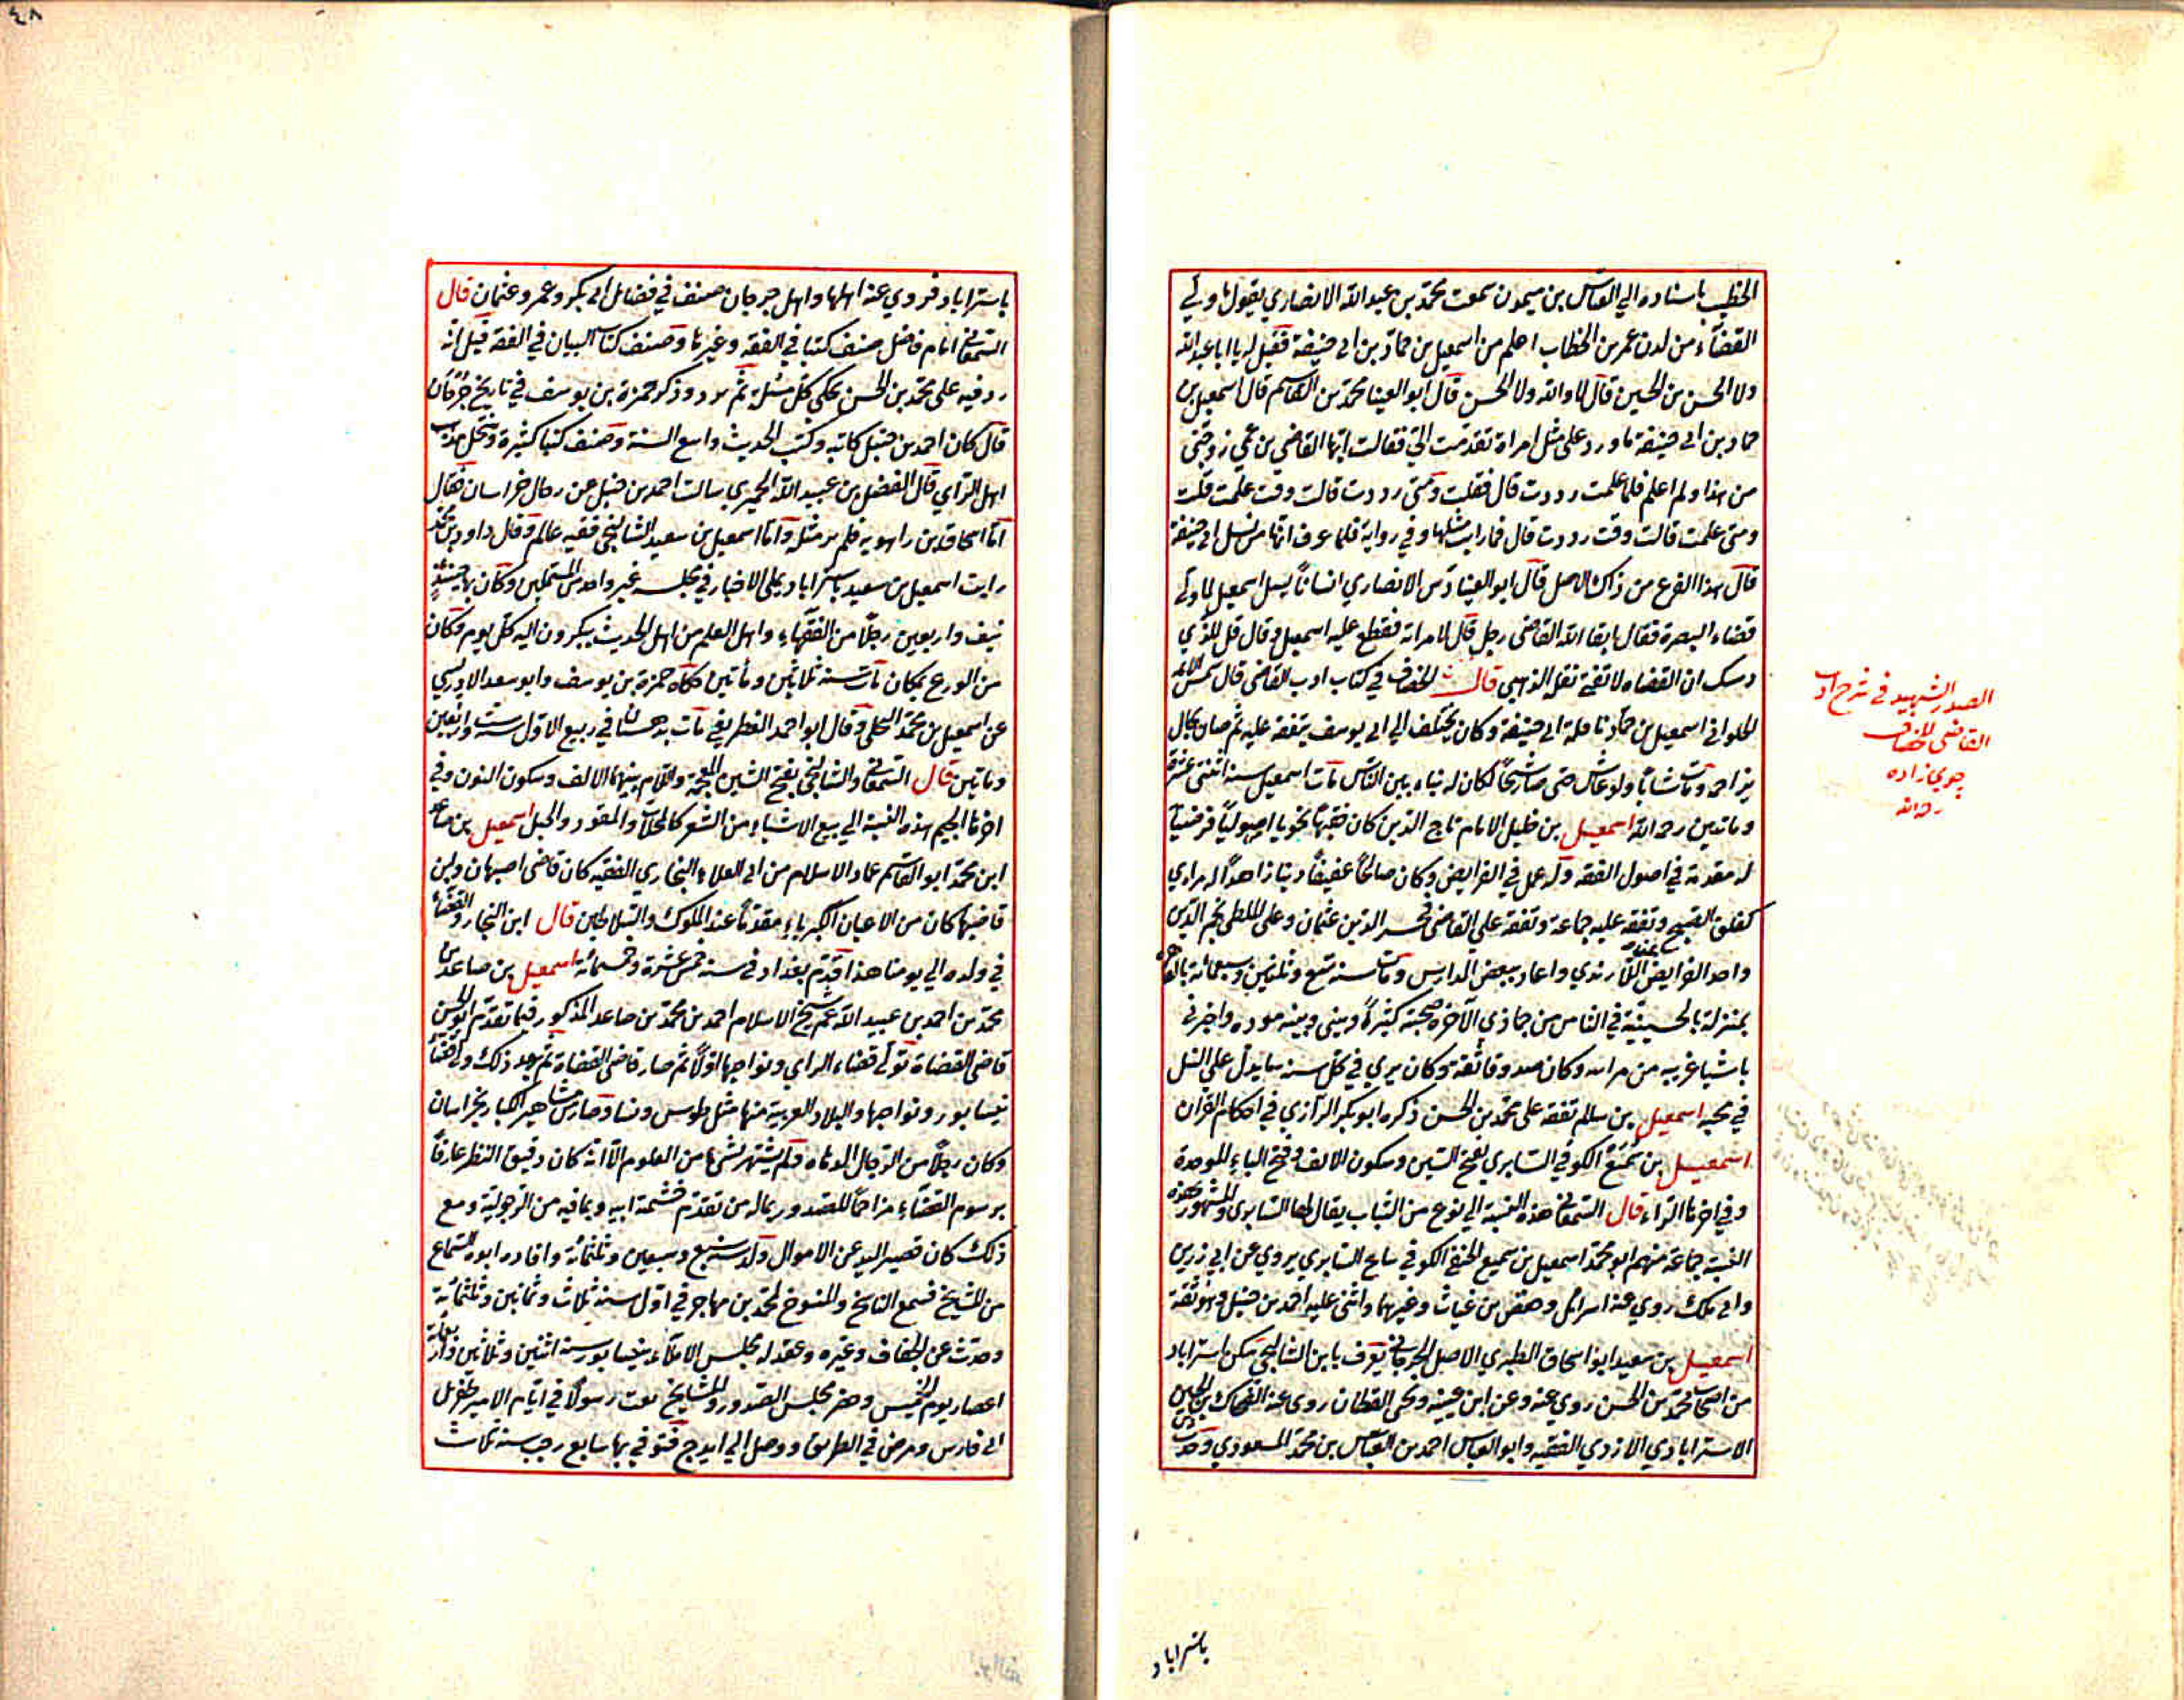 الخطيب باسناده الي العباس بن ميمون سمعت محمد بن عبد الله الانصاري يقول ما ولي
القضاء من لدن عمر بن الخطاب اعلم من اسمعيل بن حماد بن ابي حنيفة فقيل له يا ابا عبد الله
ولا الحسن بن الحسين قال لا والله ولا الحسن قال ابو العينا محمد بن القاسم قال اسمعيل بن
حماد بن ابي حنيفة ما ورد علي مثل امراة تقدمت الي فقالت ايها القاضي بن عمي زوجني
من هذا ولم اعلم فلما علمت رددت قال فقلت ومتى رددت قالت وقت علمت قلت
ومتى علمت قالت وقت رددت قال فما رايت مثلها وفي رواية فلما عرف انها من نسل ابي حنيفة
قال هذا الفرع من ذاك الاصل قال ابو العينا دس الانصاري انسانا يسل اسمعيل لما ولي
قضاء البصرة فقال ابقا الله القاضي رجل قال لامراته فقطع عليه اسمعيل وقال قل للذي
دسك ان القضاه لا تفتي نقله الذهبي قال الخصاف في كتاب ادب القاضي قال شمس الائمة
الحلواني اسمعيل بن حماد نافلة ابي حنيفة وكان يختلف الي ابي يوسف يتفقه عليه ثم صار بحال
يزاحمه ومات شابا ولو عاش حتى صار شيخا لكان له نباء بين الناس مات اسمعيل سنة اثنتي عشرة
وماتين رحمه الله اسمعيل بن خليل الامام تاج الدين كان فقيها نحويا اصوليا فرضيا
له مقدمة في اصول الفقه وله عمل في الفرايض وكان صالحا عفيفا دينا زاهدا له مراءي
كفلق الصبح وتفقه عليه جماعة وتفقه علي القاضي فخر الدين عثمان وعلى الملطي نجم الدين
واخذ الفرايض عن المارندي واعاد ببعض المدارس ومات سنة تسع وثلثين وسبعمائة بالقاهرة
بمنزلة بالحسينية في الثامن من جمادي الآخرة صحبته كثيرا وبيني وبينه موده واخبرني
باشيا غريبه من مراءيه وكان صدوقا ثقة وكان يري في كل سنة ما يدل على النيل
في مجيه اسمعيل بن سالم تفقه على محمد بن الحسن ذكره ابو بكر الرازي في احكام القران
اسمعيل بن سميع الكوفي السابري بفتح السين وسكون الالف وفتح الباء الموحدة
وفي اخرها الراء قال السمعاني هذه النسبة الي نوع من الثياب يقال لها السابري والمشهور بهذه
النسبة جماعة منهم ابو محمد اسمعيل بن سميع الحنفي الكوفي بياع السابري يروي عن ابي رزين
وابي ملك روي عنه اسرائل وحفص بن غياث وغيرهما واثنى عليه احمد بن حنبل وهو ثقة
اسمعيل بن سعيد ابو اسحاق الطبري الاصل الجرجاني يعرف بابن الشالنجي سكن استراباد
من اصحاب محمد بن الحسن روي عنه وعن ابن عيينه ويحي القطان روى عنه الضحاك بن الحسين
الاستراباذي الازدي الفقيه وابو العباس احمد بن العباس بن محمد المسعودي وحدث
الصدر الشهيد في شرح ادب
القاضي للخصاف
چوي زاده
رحمه الله
باستراباد
٤٨
باستراباد فروي عنه اهلها واهل جرجان صنف في فضائل ابي بكر وعمر وعثمان قال
السمعاني امام فاضل صنف كتبا في الفقه وغيرها وصنف كتاب البيان في الفقه قيل انه
رد فيه على محمد بن الحسن يحكي كل مسئلة ثم يرد وذكر حمزة بن يوسف في تاريخ جرجان
قال كان احمد بن حنبل كاتبه وكتب الحديث واسع السنة وصنف كتبا كثيرة وينتحل مذهب
اهل الراي قال الفضل بن عبيد الله الحميري سالت احمد بن حنبل عن رجال خراسان فقال
اما اسحاق بن راهويه فلم ير مثله واما اسمعيل بن سعيد الشالنجي فقيه عالم وقال داود بن محمد
رايت اسمعيل بن سعيد باستراباد يملي الاخبار في مجلسه غير واحد من المستملين وكان بها حينئذ
نيف واربعين رجلا من الفقهاء واهل العلم من اهل الحديث يبكرون اليه كل يوم وكان
من الورع بمكان مات سنة ثلاثين ومأتين حكاه حمزة بن يوسف وابو سعد الادريسي
عن اسمعيل بن محمد البجلي وقال ابو احمد الغطريفي مات بدهستان في ربيع الاول سنة ست واربعين
وماتين قال السمعاني والشالنجي بفتح الشين المعجمة واللام بينهما الالف وسكون النون وفي
اخرها الجيم هذه النسبة الي بيع الاشياء من الشعر كالمخلاة والمقود والحبل اسمعيل بن صاعد
ابن محمد ابو القاسم عماد الاسلام من ابي العلاء البخاري الفقيه كان قاضي اصبهان وابن
قاضيها كان من الاعيان الكبراء مقدما عند الملوك والسلاطين قال ابن النجار والقضاء
في ولده الي يومنا هذا قدم بغداد في سنة خمس عشرة وخمسمائة اسمعيل بن صاعد بن
محمد بن احمد بن عبيد الله عم شيخ الاسلام احمد بن محمد بن صاعد المذكور فيما تقدم ابو الحسن
قاضي القضاة تولي قضاء الراي ونواحيها اولا ثم صار قاضي القضاة ثم بعد ذلك ولي قضاء
نيسابور ونواحيها والبلاد الغربية منها مثل طوس ونسا وصار من مشاهير الكبار بخراسان
وكان رجلا من الرجال الدهاه ولم يشتهر بشي من العلوم الا انه كان دقيق النظر عارفا
برسوم القضاء مزاحما للصدور بماله من تقدم حشمة ابيه وبما فيه من الرجولية ومع
ذلك كان قصير اليد عن الاموال ولد سنة سبع وسبعين وثلثمائة وافاده ابوه السماع
من المشايخ فسمع الناسخ والمنسوخ لمحمد بن مهاجر في اول سنة ثلاث وثمانين وثلثمائة
وحدث عن الخفاف وغيره وعقد له مجلس الاملاء بنيسابور سنة اثنين وثلاثين واربعمائة
اعصار يوم الخميس وحضر مجلس الصدور والمشايخ بعث رسولا في ايام الامير طغرل
الي فارس ومرض في الطريق ووصل الي ايدج فتوفي بها سابع رجب سنة ثلاث